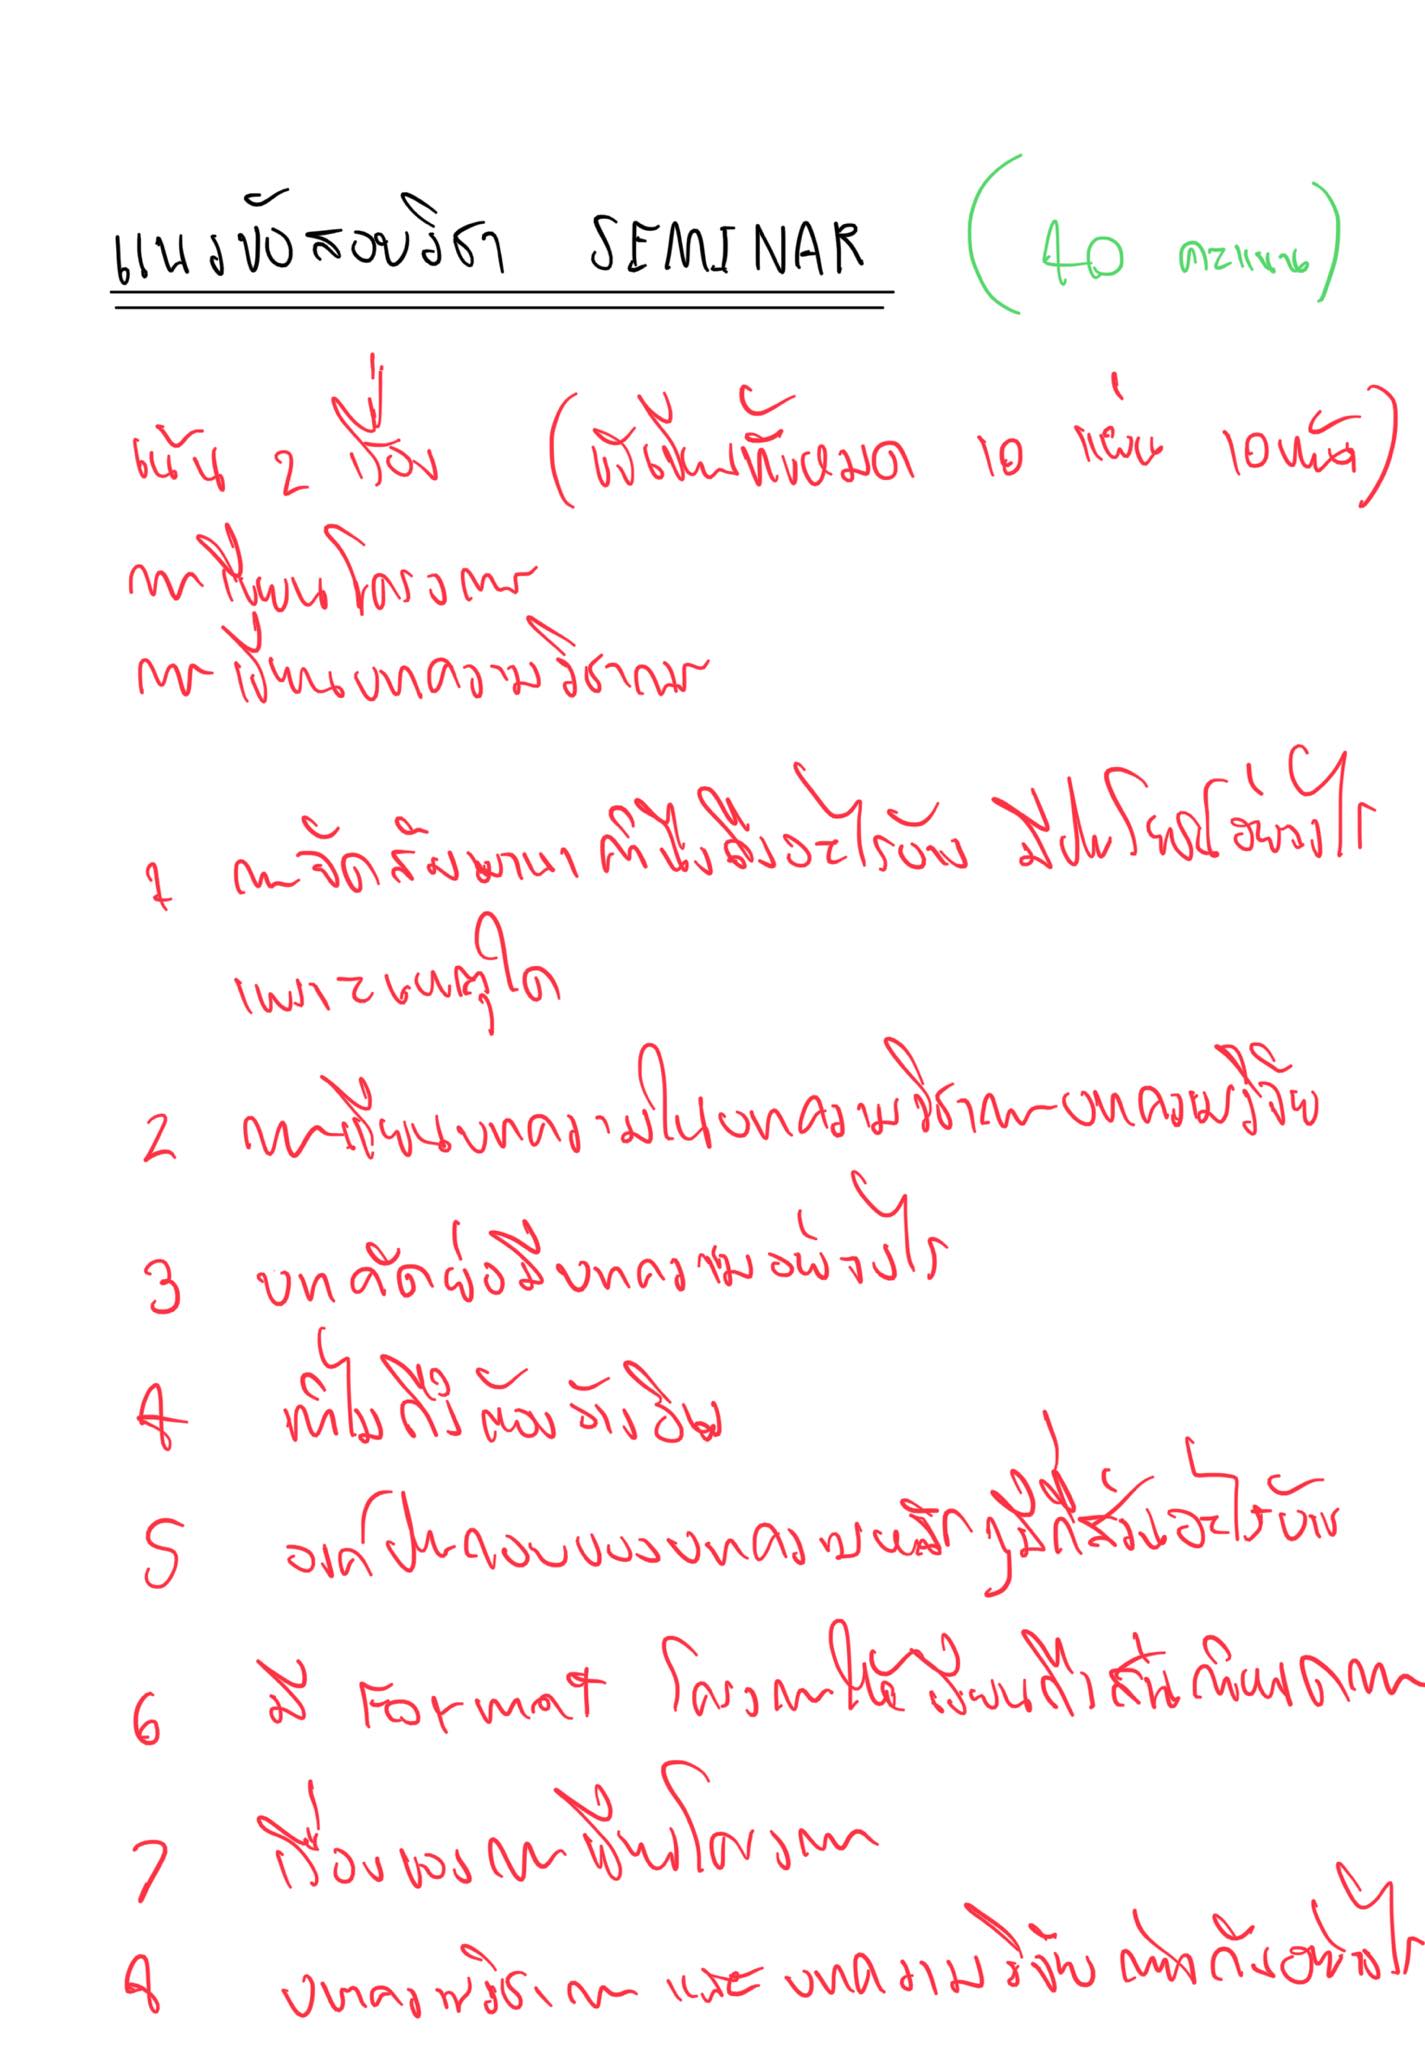 แนวข้อสอบวิชา SEMINAR (40 คะแนน)
เน้น 2 เรื่อง (เขียนทั้งหมด 10 แผ่น 10 หน้า)
การเขียนโครงการ
การเขียนบทความวิชาการ
1 การจัดสัมมนาคำนึงถึงอะไรบ้าง มีประโยชน์อย่างไร
เพราะเหตุใด
2 การเขียนบทความในบทความวิชาการ บทความวิจัย
3 บทคัดย่อมีบทความอย่างไร
4 ทำไมถึงต้องอ้างอิง
5 องค์ประกอบของบทความหลักๆมีกี่ส่วนอะไรบ้าง
6 มี Format โครงการให้เขียน
7 เรื่องของการเขียนโครงการ
8 บทความวิชาการ และ บทความวิจัย ต่างกันอย่างไร